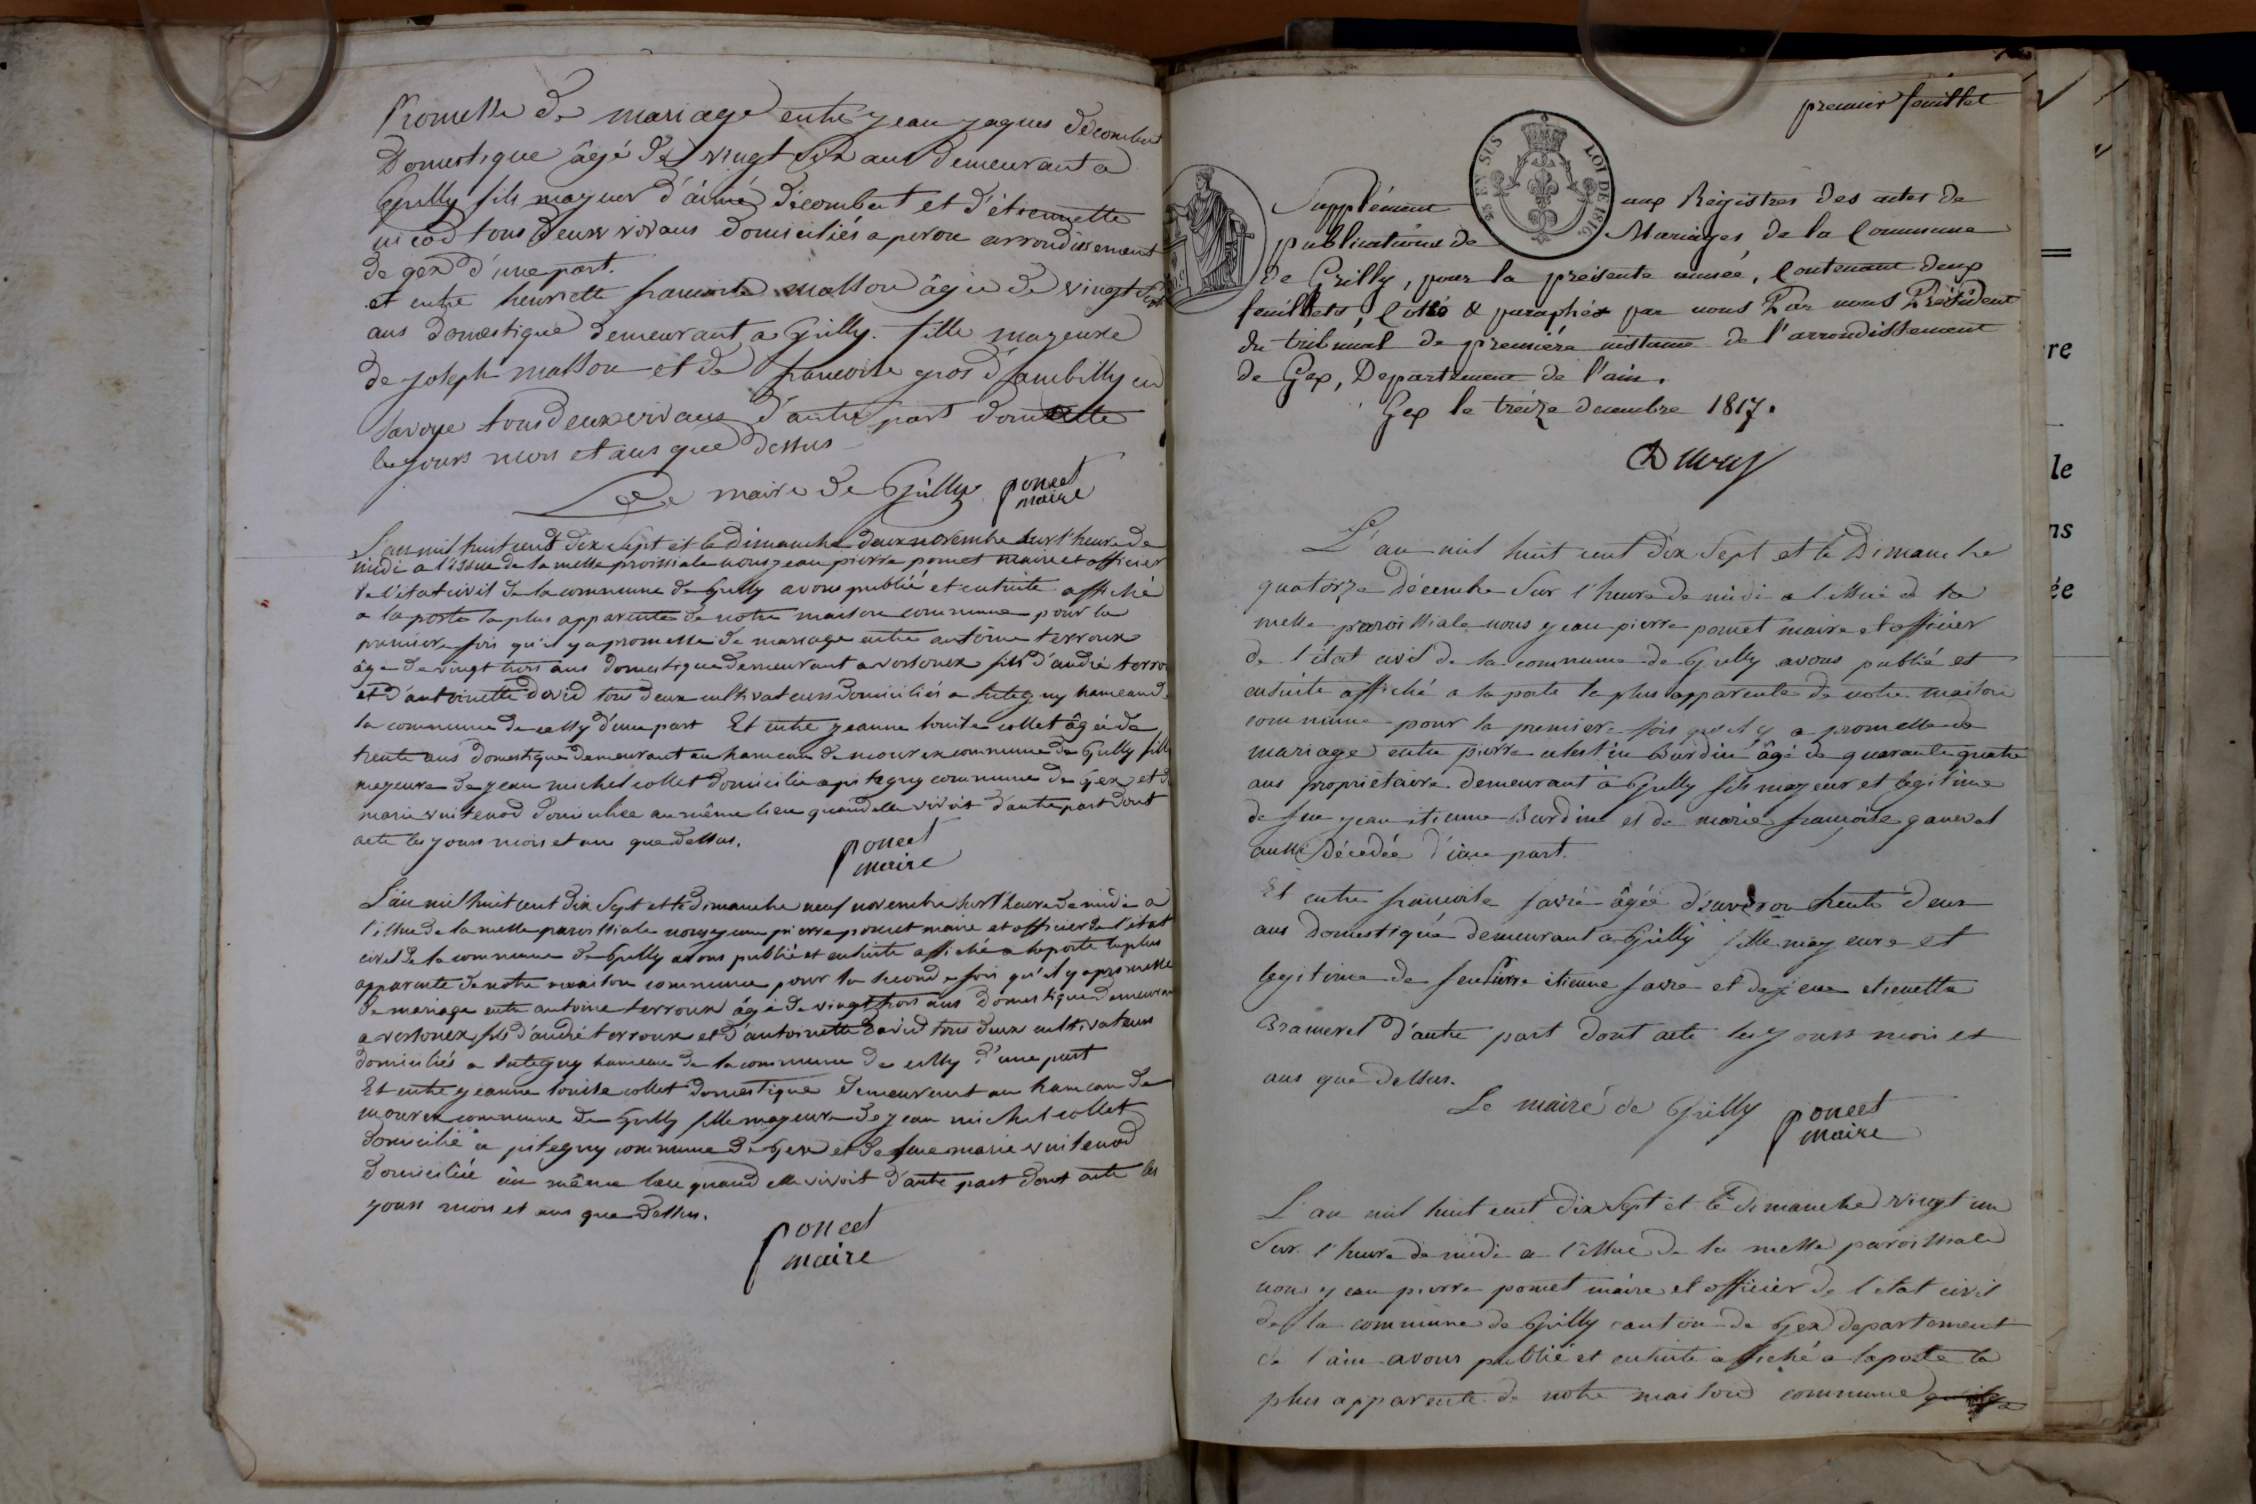 Promesse de mariage entre jean jaques décombat
Domestique âgé de vingt six ans demeurant a
Grilly fils mayeur d'aimé décombat et d'étiennette
nicod tous deux vivans domiciliés a peron arrondissement
de gex d'une part.
et entre henriette francoise masson âgée de vingt sept
ans domestique demeurant a Grilly. fille mayeure
de joseph masson et de francoise gros d'ambilly en
Savoye tous deux vivans d'autre part dont acte
les jours mois et ans que dessus
Le maire de Grilly poncet
maire
L'an mil huit cent dix sept et le dimanche deux novembre sur l'heure de
midi a l'issue de la messe proissiale nous jean pierre poncet maire et officier
de l'état civil de la commune de Grilly avons publié et ensuite affiché
a la porte la plus apparente de notre maison commune pour la
premiere fois qu'il y a promesse de mariage entre antoine terroux
âgé de vingt trois ans domestique demeurant a versonex fils d'andré terroux
et d'antoinette david tous deux cultivateurs domiciliés a hameau de
la commune de cessy d'une part Et entre jeanne louise collet âgée de
trente ans domestique demeurant au hameau de mourex commune de Grilly fille
mayeure de jean michel collet domicilié a pitegny commune de Gex et de
marie vuitenod domiciliée au même lieu quand elle vivoit d'autre part dont
acte les jours mois et ans que dessus.
poncet
maire
L'an mil huit cent dix sept et le dimanche neuf novembre sur l'heure de midi a
l'issue de la messe paroissiale nous jean pierre poncet maire et officier de l'état
civil de la commune de Grilly avons publié et ensuite affiché a la porte la plus
apparente de notre maison commune pour la seconde fois qu'il y a promesse
de mariage entre antoine terroux âgé de vingt trois ans domestique demeurant
a versonex fils d'andré terroux et d'antoinette david tous deux cultivateurs
domiciliés a hameau de la commune de cessy d'une part
Et entre jeanne louise collet domestique demeurant au hameau de
mourex commune de Grilly fille mayeure de jean michel collet
domicilié a pitegny commune de Gex et de feue marie vuitenod
domiciliée au même lieu quand elle vivoit d'autre part dont acte les
jours mois et ans que dessus.
poncet
maire
premier feuillet
EN SUS LOI DE 1816
Supplément aux Régistres des actes de
publications de Mariages de la Commune
de Grilly, pour la présente année, Contenant deux
feuillets, Cotté & paraphés par nous Par nous Président
du tribunal de première instance de l'arrondissement
de Gex, Departement de l'ain.
Gex le treize decembre 1817.
L'an mil huit cent dix sept et le Dimanche
quatorze décembre sur l'heure de midi a l'issue de la
messe paroissiale nous jean pierre poncet maire et officier
de l'état civil de la commune de Grilly avons publié et
ensuite affiché a la porte la plus apparente de notre maison
commune pour la premiere fois qu'il y a promesse de
mariage entre pierre Burdin âgé de quarante quatre
ans propriétaire demeurant a Grilly fils mayeur et legitime
de feu jean etienne Burdin et de marie françoise ganeval
aussi décédée d'une part.
Et entre francoise favre âgée d'environ trente deux
ans domestique demeurant a Grilly fille mayeure et
legitime de feu pierre etienne favre et de jeune etienette
Brameret d'autre part dont acte les jours mois et
ans que dessus.
Le maire de Grilly poncet
maire
L'an mil huit cent dix sept et le dimanche vingt un
Sur l'heure de midi a l'issue de la messe paroissiale
nous jean pierre poncet maire et officier de l'etat civil
de la commune de Grilly canton de Gex departement
de l'ain avons publié et ensuite affiché a la porte la
plus apparente de notre maison commune
re
le
ns
ée